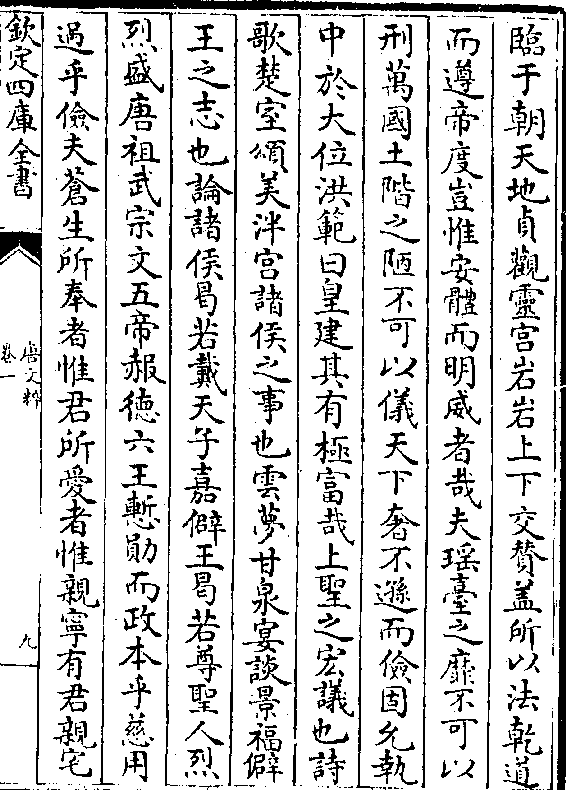 臨于朝天地貞觀靈宫岩岩上下交賛盖所以法乾道
而遵帝度豈惟安體而明威者哉夫瑶臺之靡不可以
刑萬國土階之陋不可以儀天下奢不遜而儉固允執
中於大位洪範曰皇建其有極富哉上聖之宏議也詩
歌楚室頌美泮宫諸侯之事也雲夢甘泉宴談景福僻
王之志也論諸侯曷若戴天子嘉僻王曷若尊聖人烈
烈盛唐祖武宗文五帝赧徳六王慙勛而政本乎慈用
過乎儉夫蒼生所奉者惟君所愛者惟親寧有君親宅
欽定四庫全書
唐文粹
卷一
九